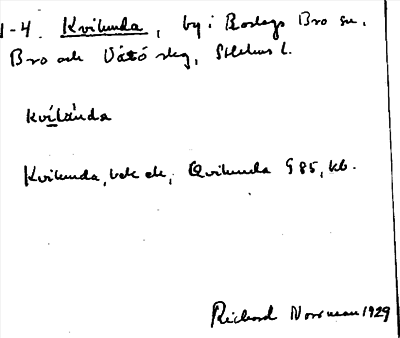 1-4. Kvilunda, by i Roslags Bro sn,
Bro och Vätö skg, Sthlms l.
kvílùnda
Kvilunda, uek ek, Qvilunda G 85, kb.
Richard Norrman 1929